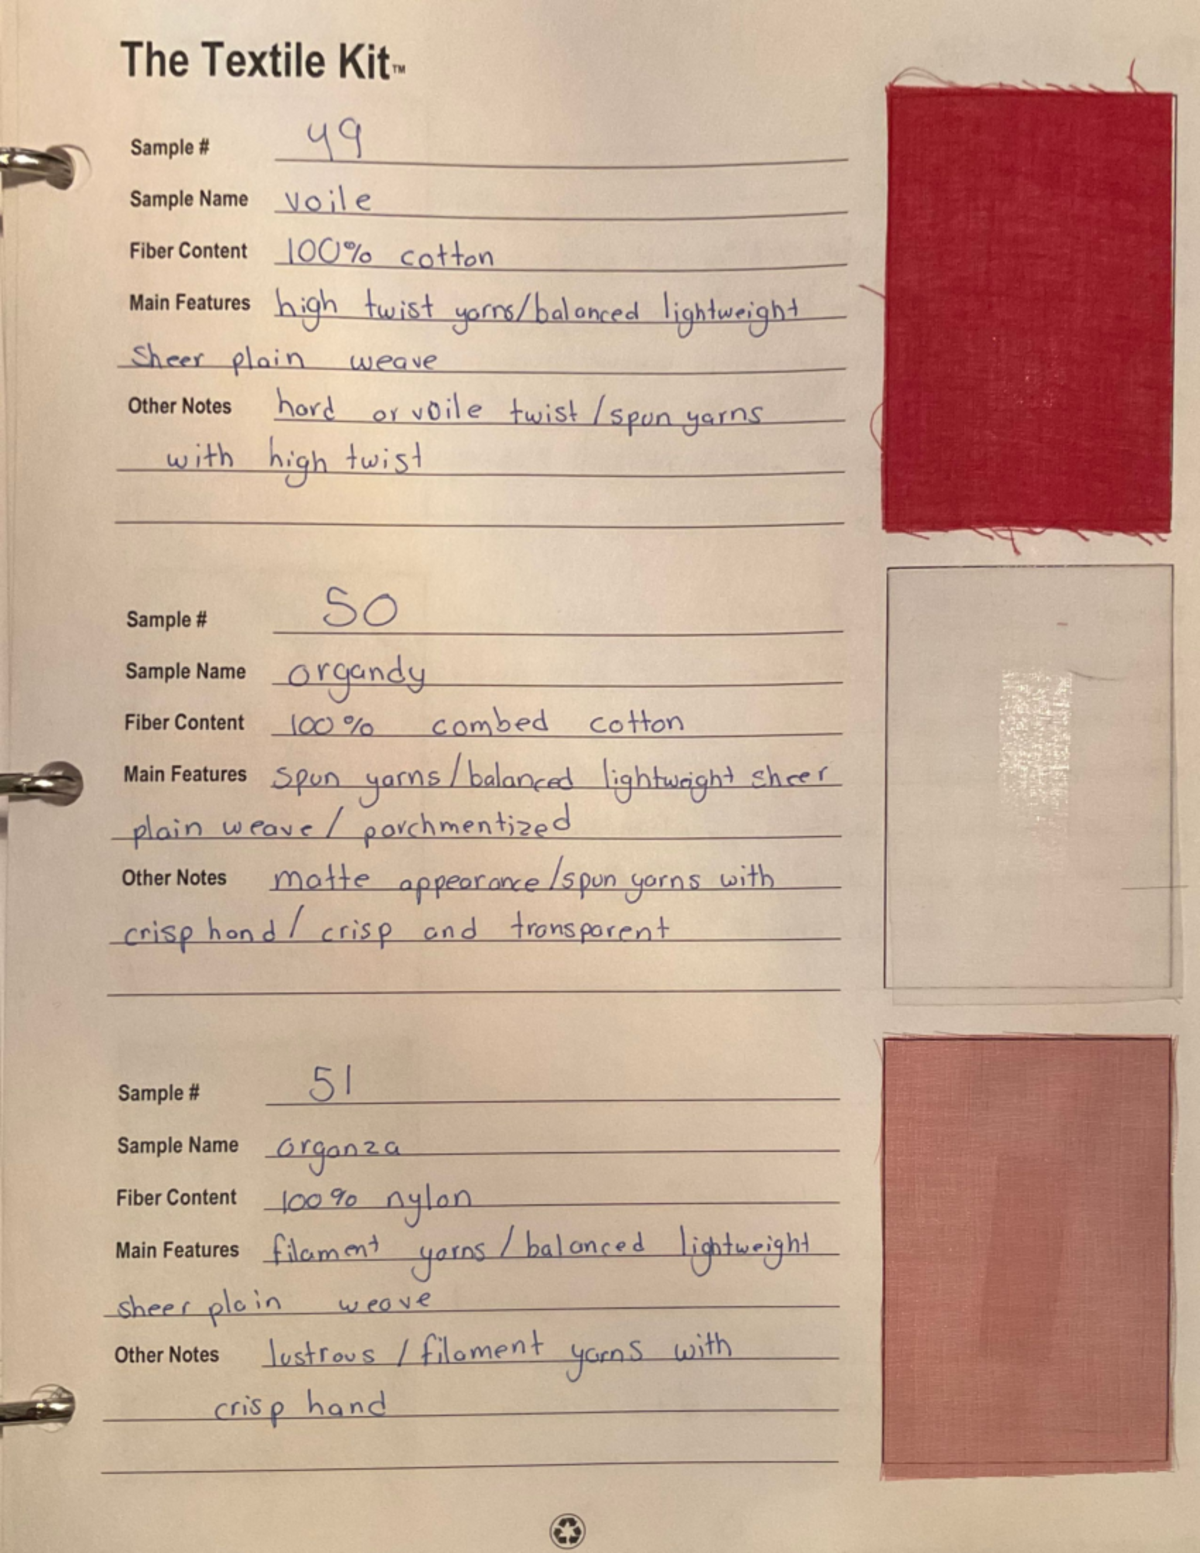 The Textile Kit™
Sample # 49
Sample Name voile
Fiber Content 100% cotton
Main Features high twist yarns/balanced lightweight
sheer plain weave
Other Notes hard or voile twist/spun yarns
with high twist
Sample # 50
Sample Name organdy
Fiber Content 100% combed cotton
Main Features spun yarns/balanced lightweight sheer
plain weave/parchmentized
Other Notes matte appearance/spun yarns with
crisp hand/crisp and transparent
Sample # 51
Sample Name organza
Fiber Content 100% nylon
Main Features filament yarns/balanced lightweight
sheer plain weave
Other Notes lustrous/filament yarns with
crisp hand